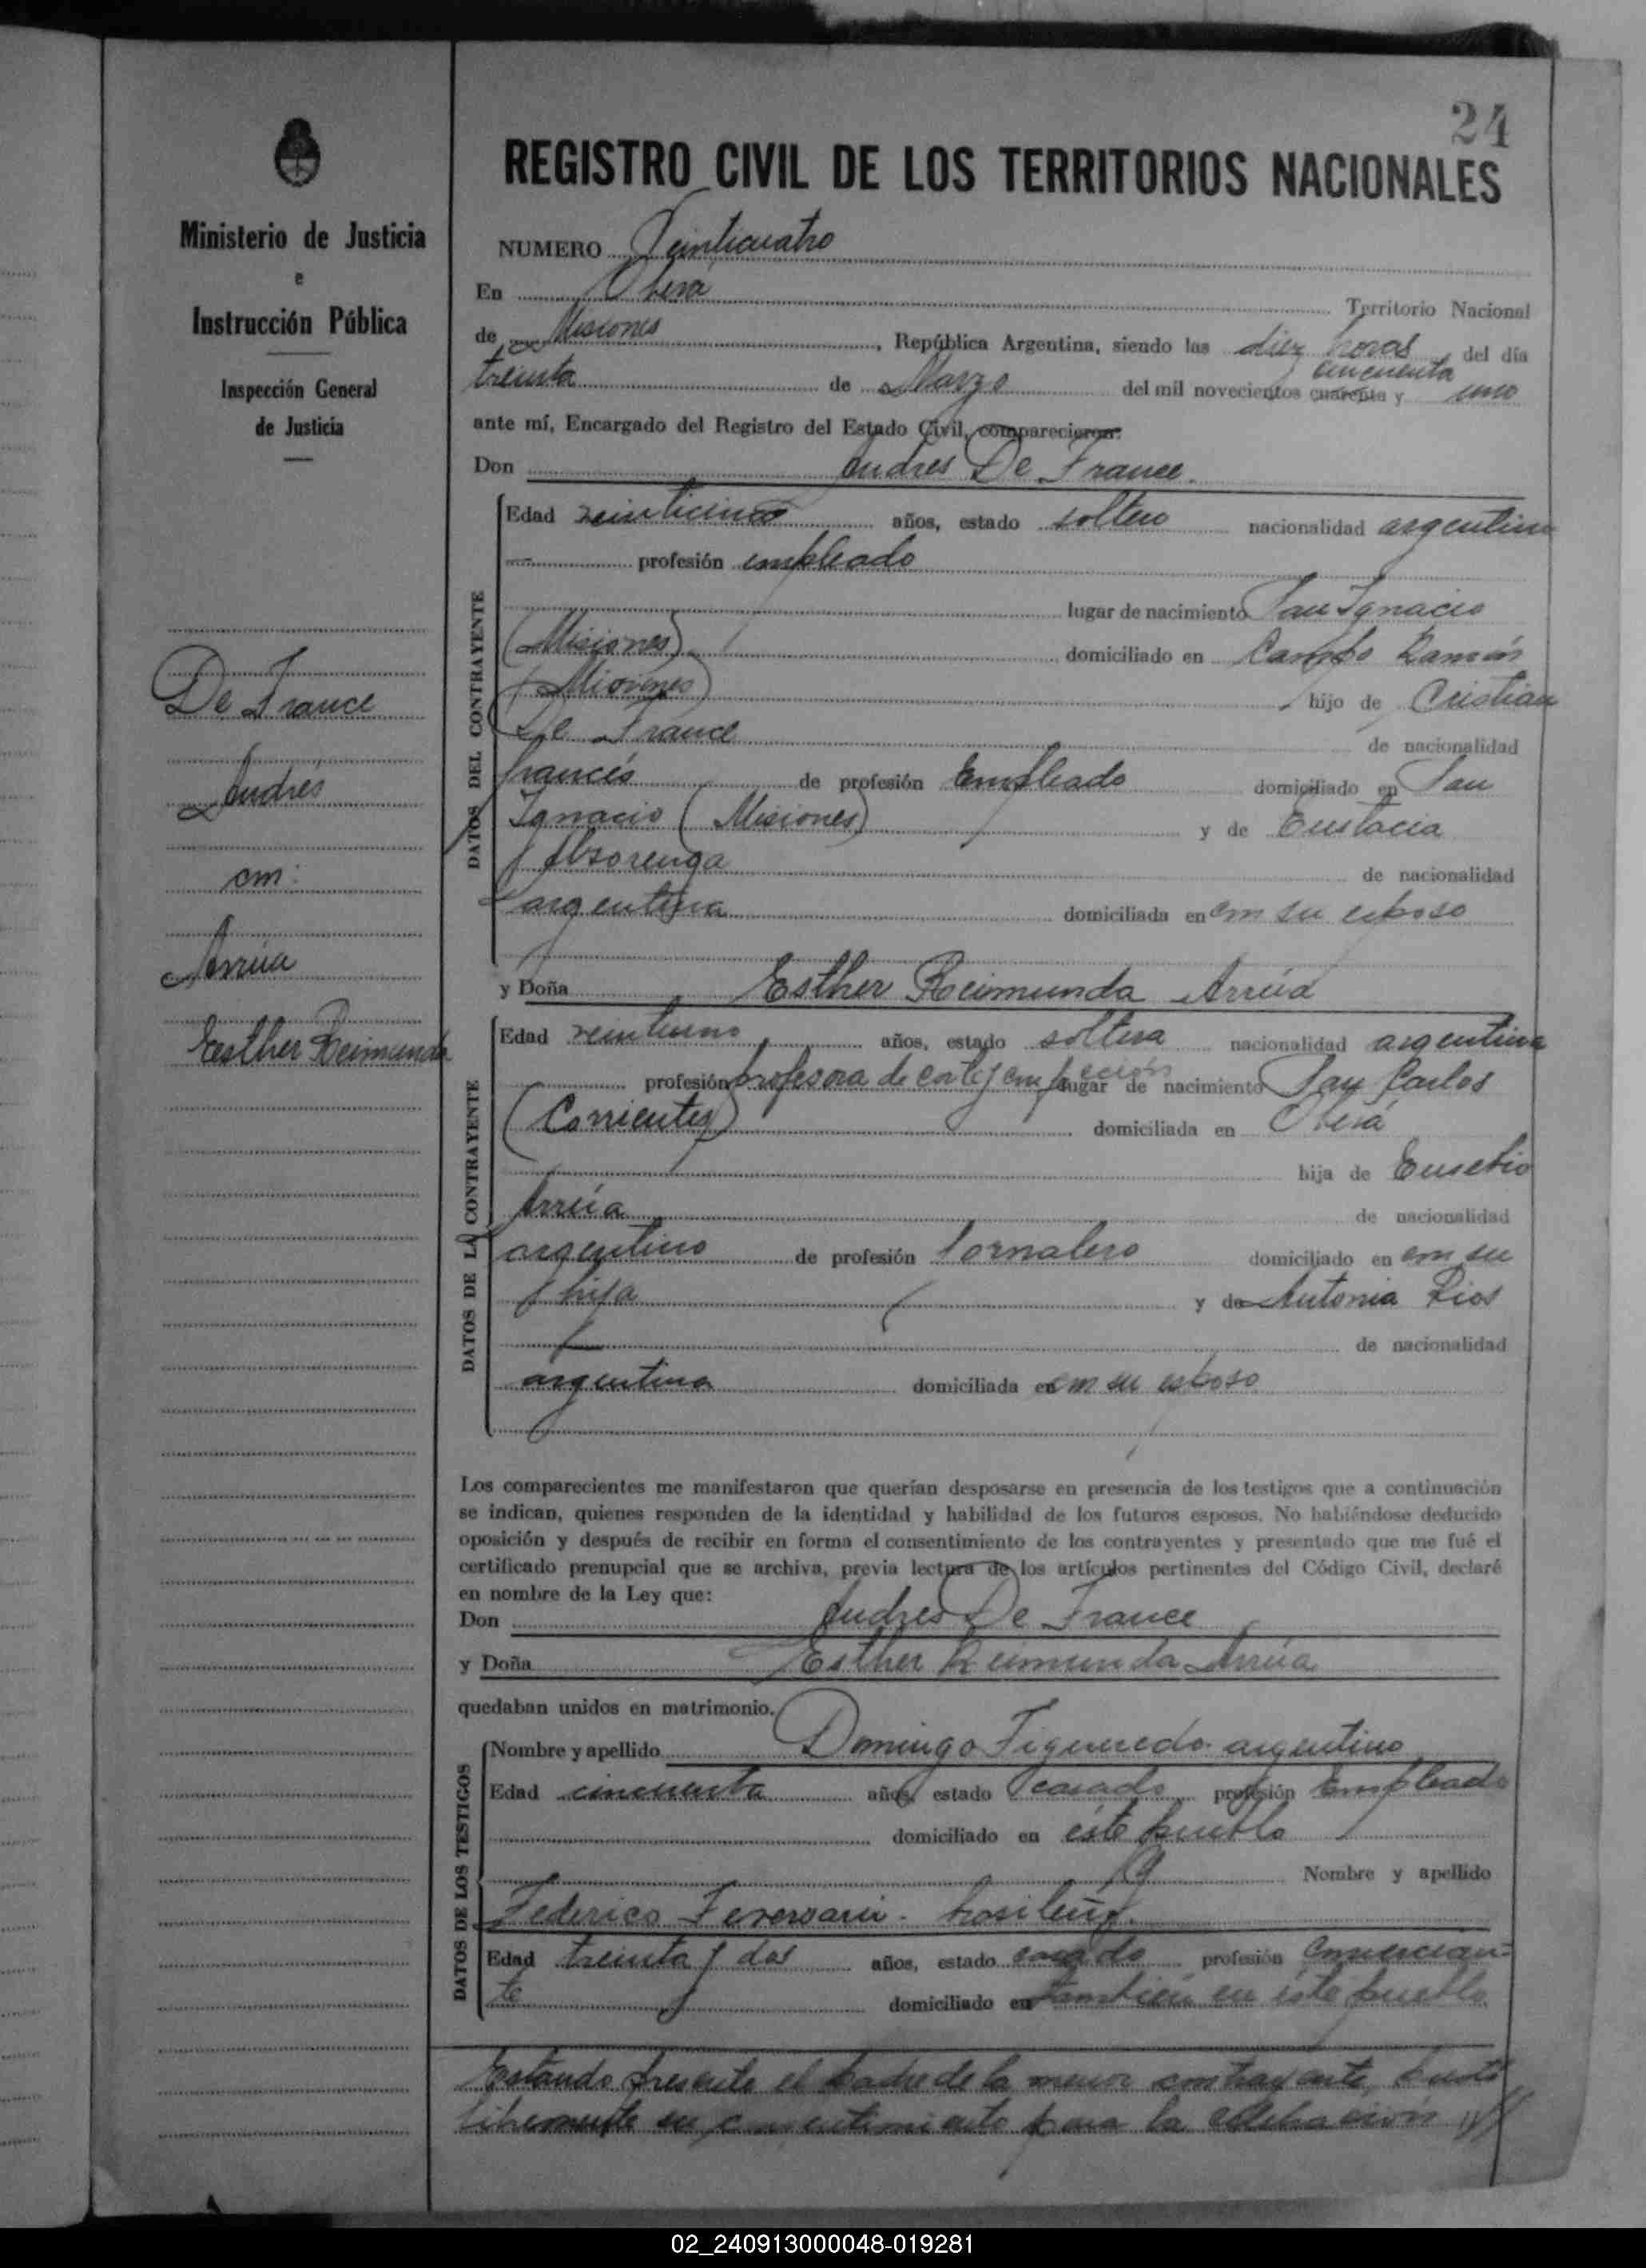 24
REGISTRO CIVIL DE LOS TERRITORIOS NACIONALES
Ministerio de Justicia
e
Instrucción Pública
Inspección General
de Justicia
De France
Andrés
con:
Arrúa
Esther Reimunda
NUMERO Veinticuatro
En Oberá Territorio Nacional
de Misiones, República Argentina, siendo las diez horas del día
treinta de Marzo del mil novecientos cuarenta y cincuenta uno
ante mí, Encargado del Registro del Estado Civil, comparecieron:
Don Andres De France.
DATOS DEL CONTRAYENTE
Edad veinticinco años, estado soltero nacionalidad argentino
profesión empleado
lugar de nacimiento San Ignacio
(Misiones) domiciliado en Campo Ramón
(Misiones) hijo de Cristian
De France de nacionalidad
francés de profesión Empleado domiciliado en San
Ignacio (Misiones) y de Eustacia
de nacionalidad
argentina domiciliada en con su esposo
y Doña Esther Reimunda Arrúa
DATOS DE LA CONTRAYENTE
Edad veintiuno años, estado soltera nacionalidad argentina
profesión profesora de corte y confección lugar de nacimiento San Carlos
(Corrientes) domiciliada en Oberá
hija de Eusebio
Arrúa de nacionalidad
argentino de profesión Jornalero domiciliado en con su
hija y de Antonia Rios
de nacionalidad
argentina domiciliada en con su esposo
Los comparecientes me manifestaron que querían desposarse en presencia de los testigos que a continuación
se indican, quienes responden de la identidad y habilidad de los futuros esposos. No habiéndose deducido
oposición y después de recibir en forma el consentimiento de los contrayentes y presentado que me fué el
certificado prenupcial que se archiva, previa lectura de los artículos pertinentes del Código Civil, declaré
en nombre de la Ley que:
Don Andres De France
y Doña Esther Reimunda Arrúa
quedaban unidos en matrimonio.
DATOS DE LOS TESTIGOS
Nombre y apellido Domingo Figueredo argentino
Edad cincuenta años, estado casado profesión Empleado
domiciliado en éste pueblo
Nombre y apellido
Federico
Edad treinta y dos años, estado casado profesión Comercian-
te domiciliado en también en éste pueblo
Estando presente el padre de la menor contrayente, prestó
libremente su consentimiento para la celebración
02_240913000048-019281